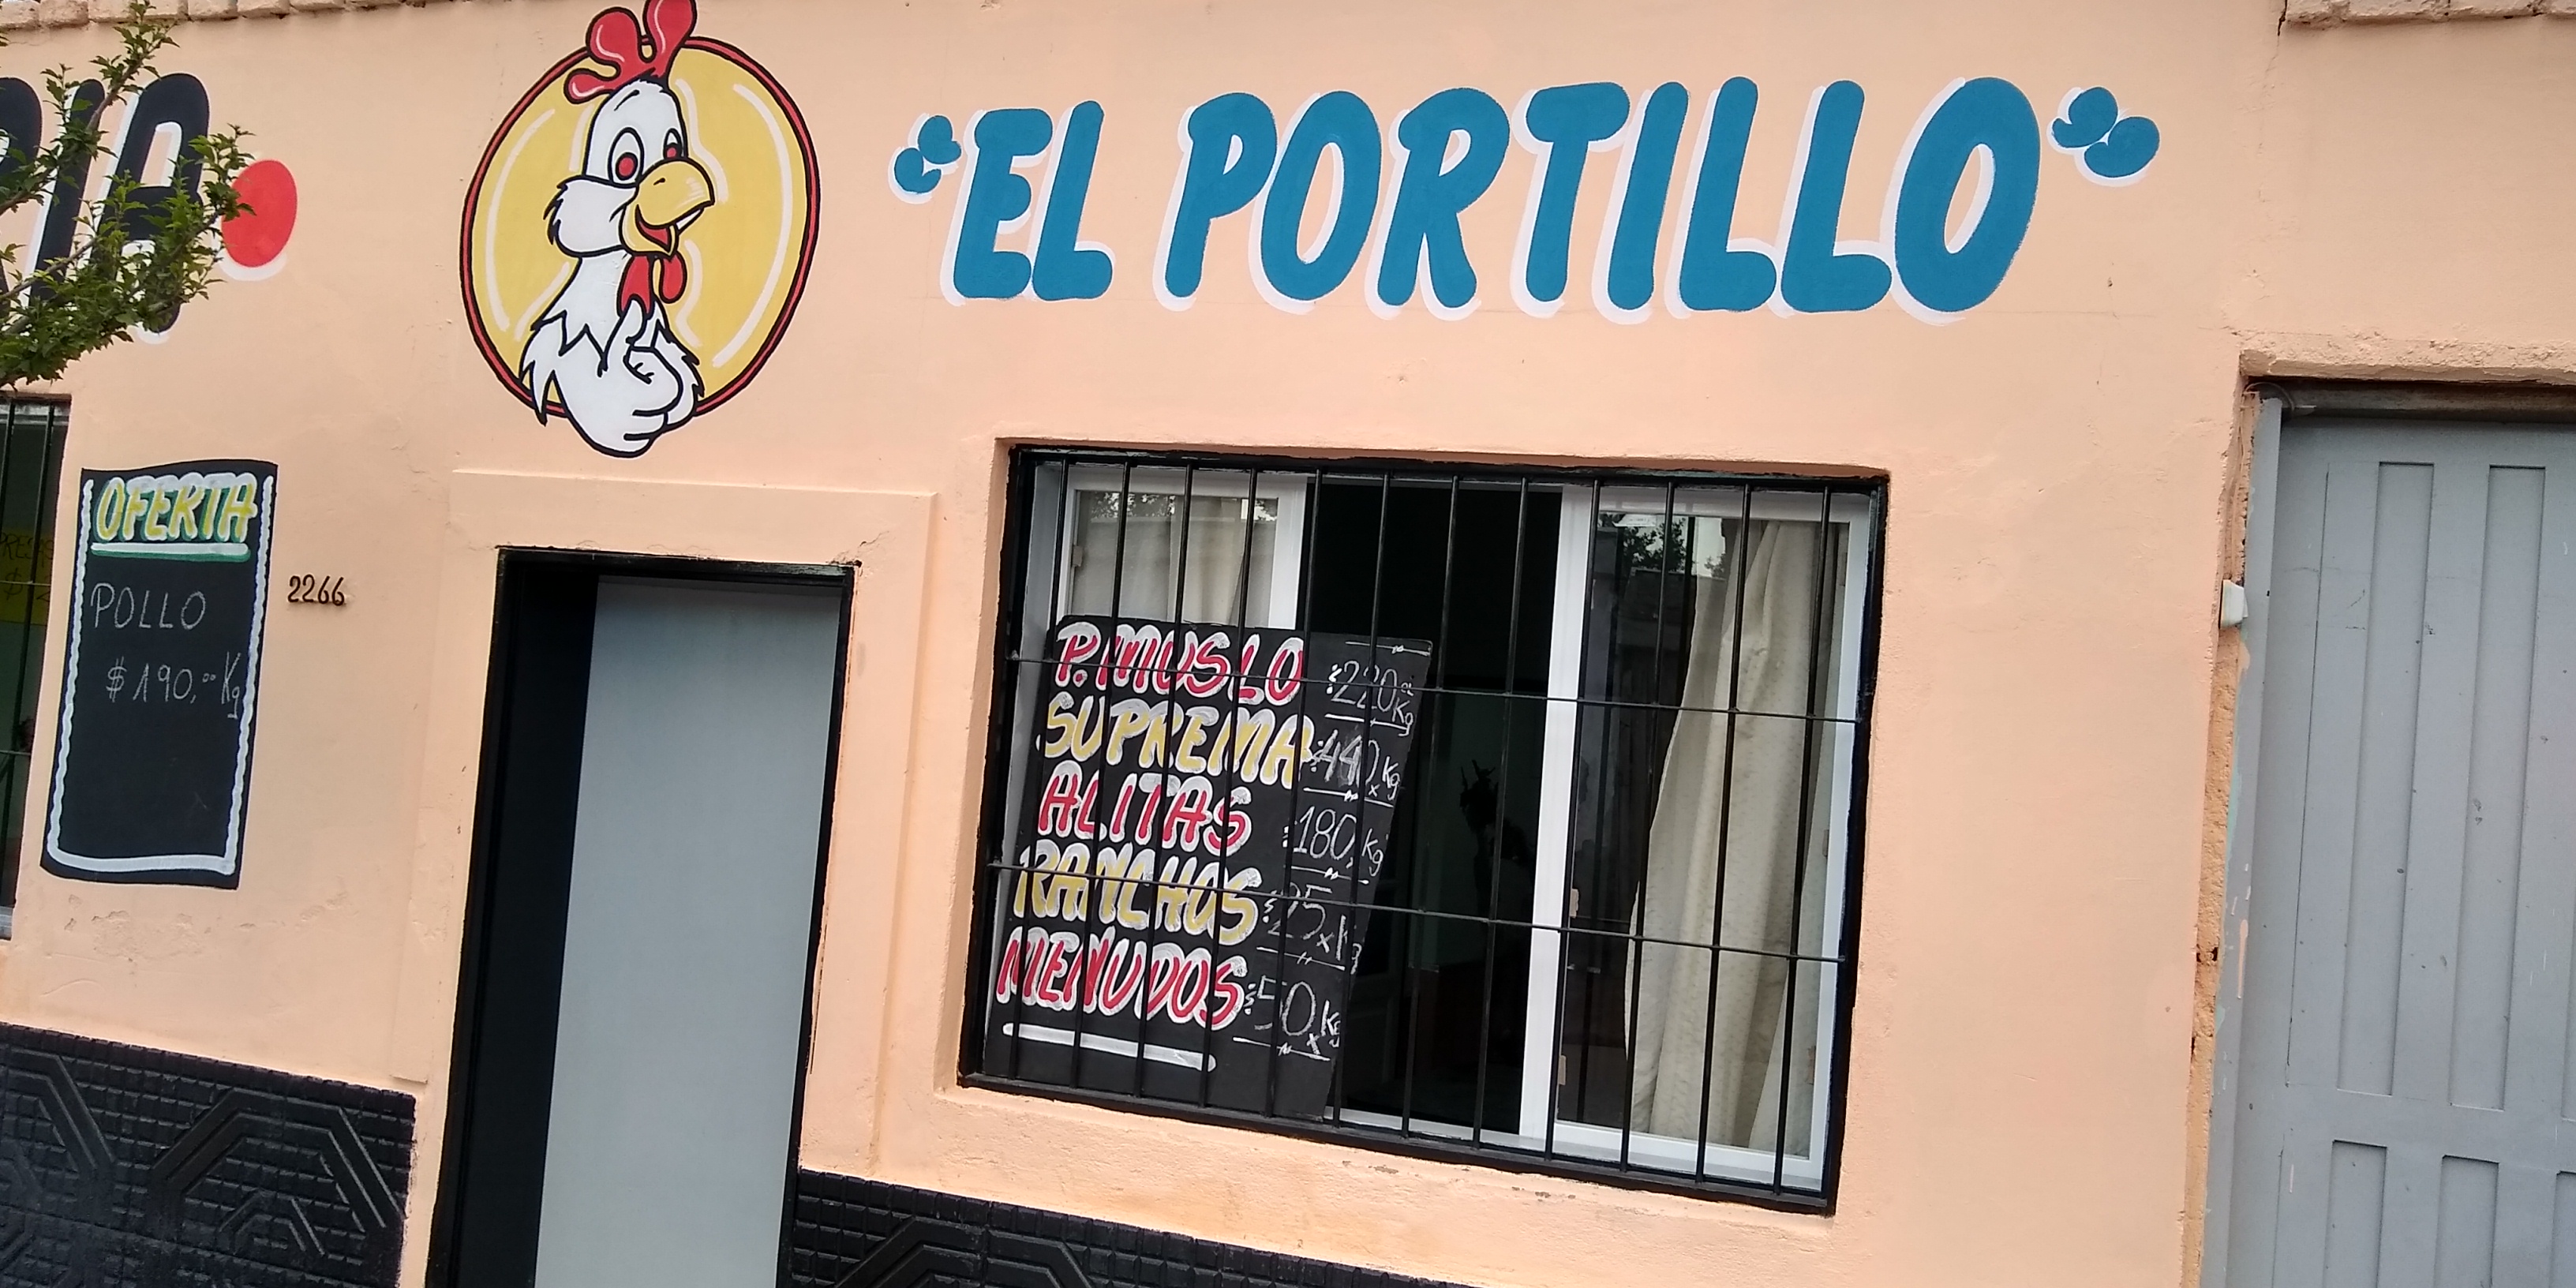 "EL PORTILLO"
OFERTA
POLLO
$190,00 Kg
2266
P.MUSLO $220,00 Kg
SUPREMA $440,xKg
ALITAS $180,Kg
RANCHOS $25xKg
MENUDOS $50xKg